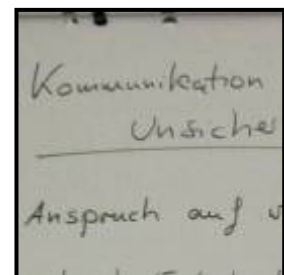 Kommunikation
Unsicher
Anspruch auf